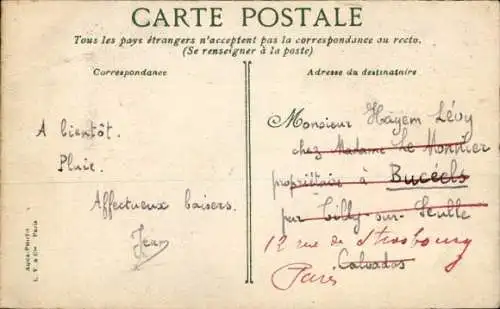 CARTE POSTALE
Tous les pays étrangers n'acceptent pas la correspondance au recto.
(Se renseigner à la poste)
Correspondance
Adresse du destinataire
A bientôt.
Pluie.
Affectueux baisers.
Jean
Monsieur Hayem Lévy
chez Madame Le Monnier
propriétaire à Bucéels
par Tilly-sur-Seulle
12 rue de Strasbourg
Calvados
Paris
Aqua-Photo
L. V. & Cie Paris